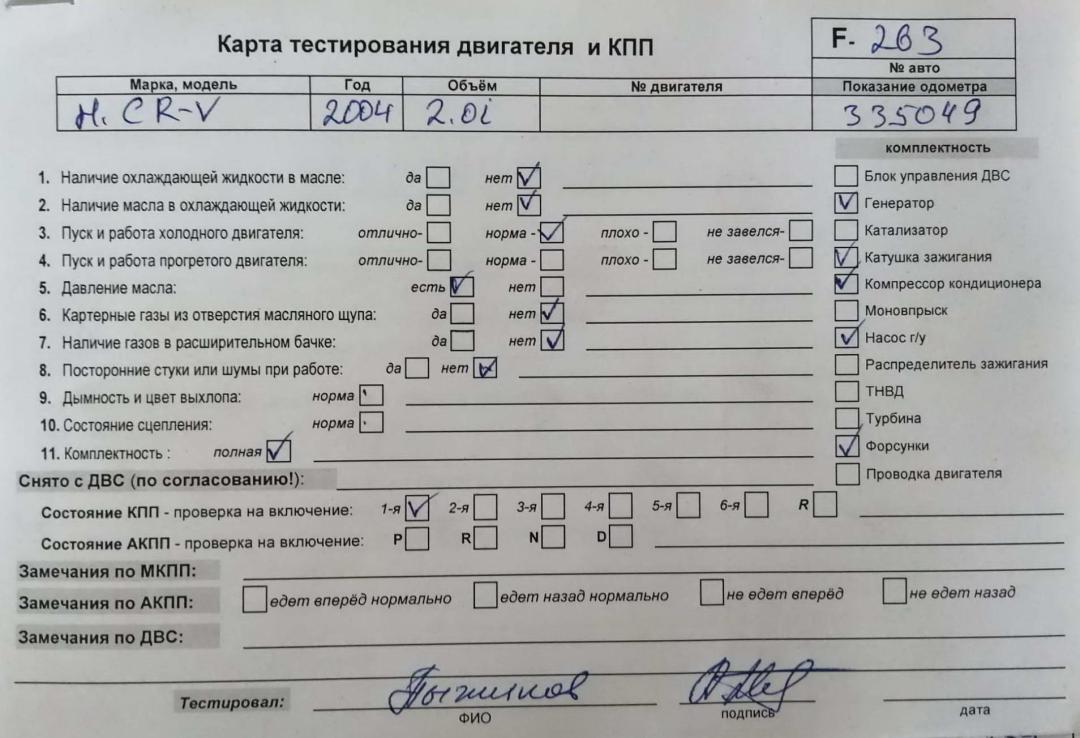 Карта тестирования двигателя и КПП
F- 263
№ авто
Марка, модель Год Объём № двигателя Показание одометра
H. CR-V 2004 2.0i 335049
комплектность
1. Наличие охлаждающей жидкости в масле: да нет
Блок управления ДВС
2. Наличие масла в охлаждающей жидкости: да нет
Генератор
3. Пуск и работа холодного двигателя: отлично- норма - плохо - не завелся-
Катализатор
4. Пуск и работа прогретого двигателя: отлично- норма - плохо - не завелся-
Катушка зажигания
5. Давление масла: есть нет
Компрессор кондиционера
6. Картерные газы из отверстия масляного щупа: да нет
Моновпрыск
7. Наличие газов в расширительном бачке: да нет
Насос г/у
8. Посторонние стуки или шумы при работе: да нет
Распределитель зажигания
9. Дымность и цвет выхлопа: норма
ТНВД
10. Состояние сцепления: норма
Турбина
11. Комплектность : полная
Форсунки
Снято с ДВС (по согласованию!):
Проводка двигателя
Состояние КПП - проверка на включение: 1-я 2-я 3-я 4-я 5-я 6-я R
Состояние АКПП - проверка на включение: P R N D
Замечания по МКПП:
Замечания по АКПП: едет вперёд нормально едет назад нормально не едет вперёд не едет назад
Замечания по ДВС:
Тестировал: Пыжиков
ФИО подпись дата